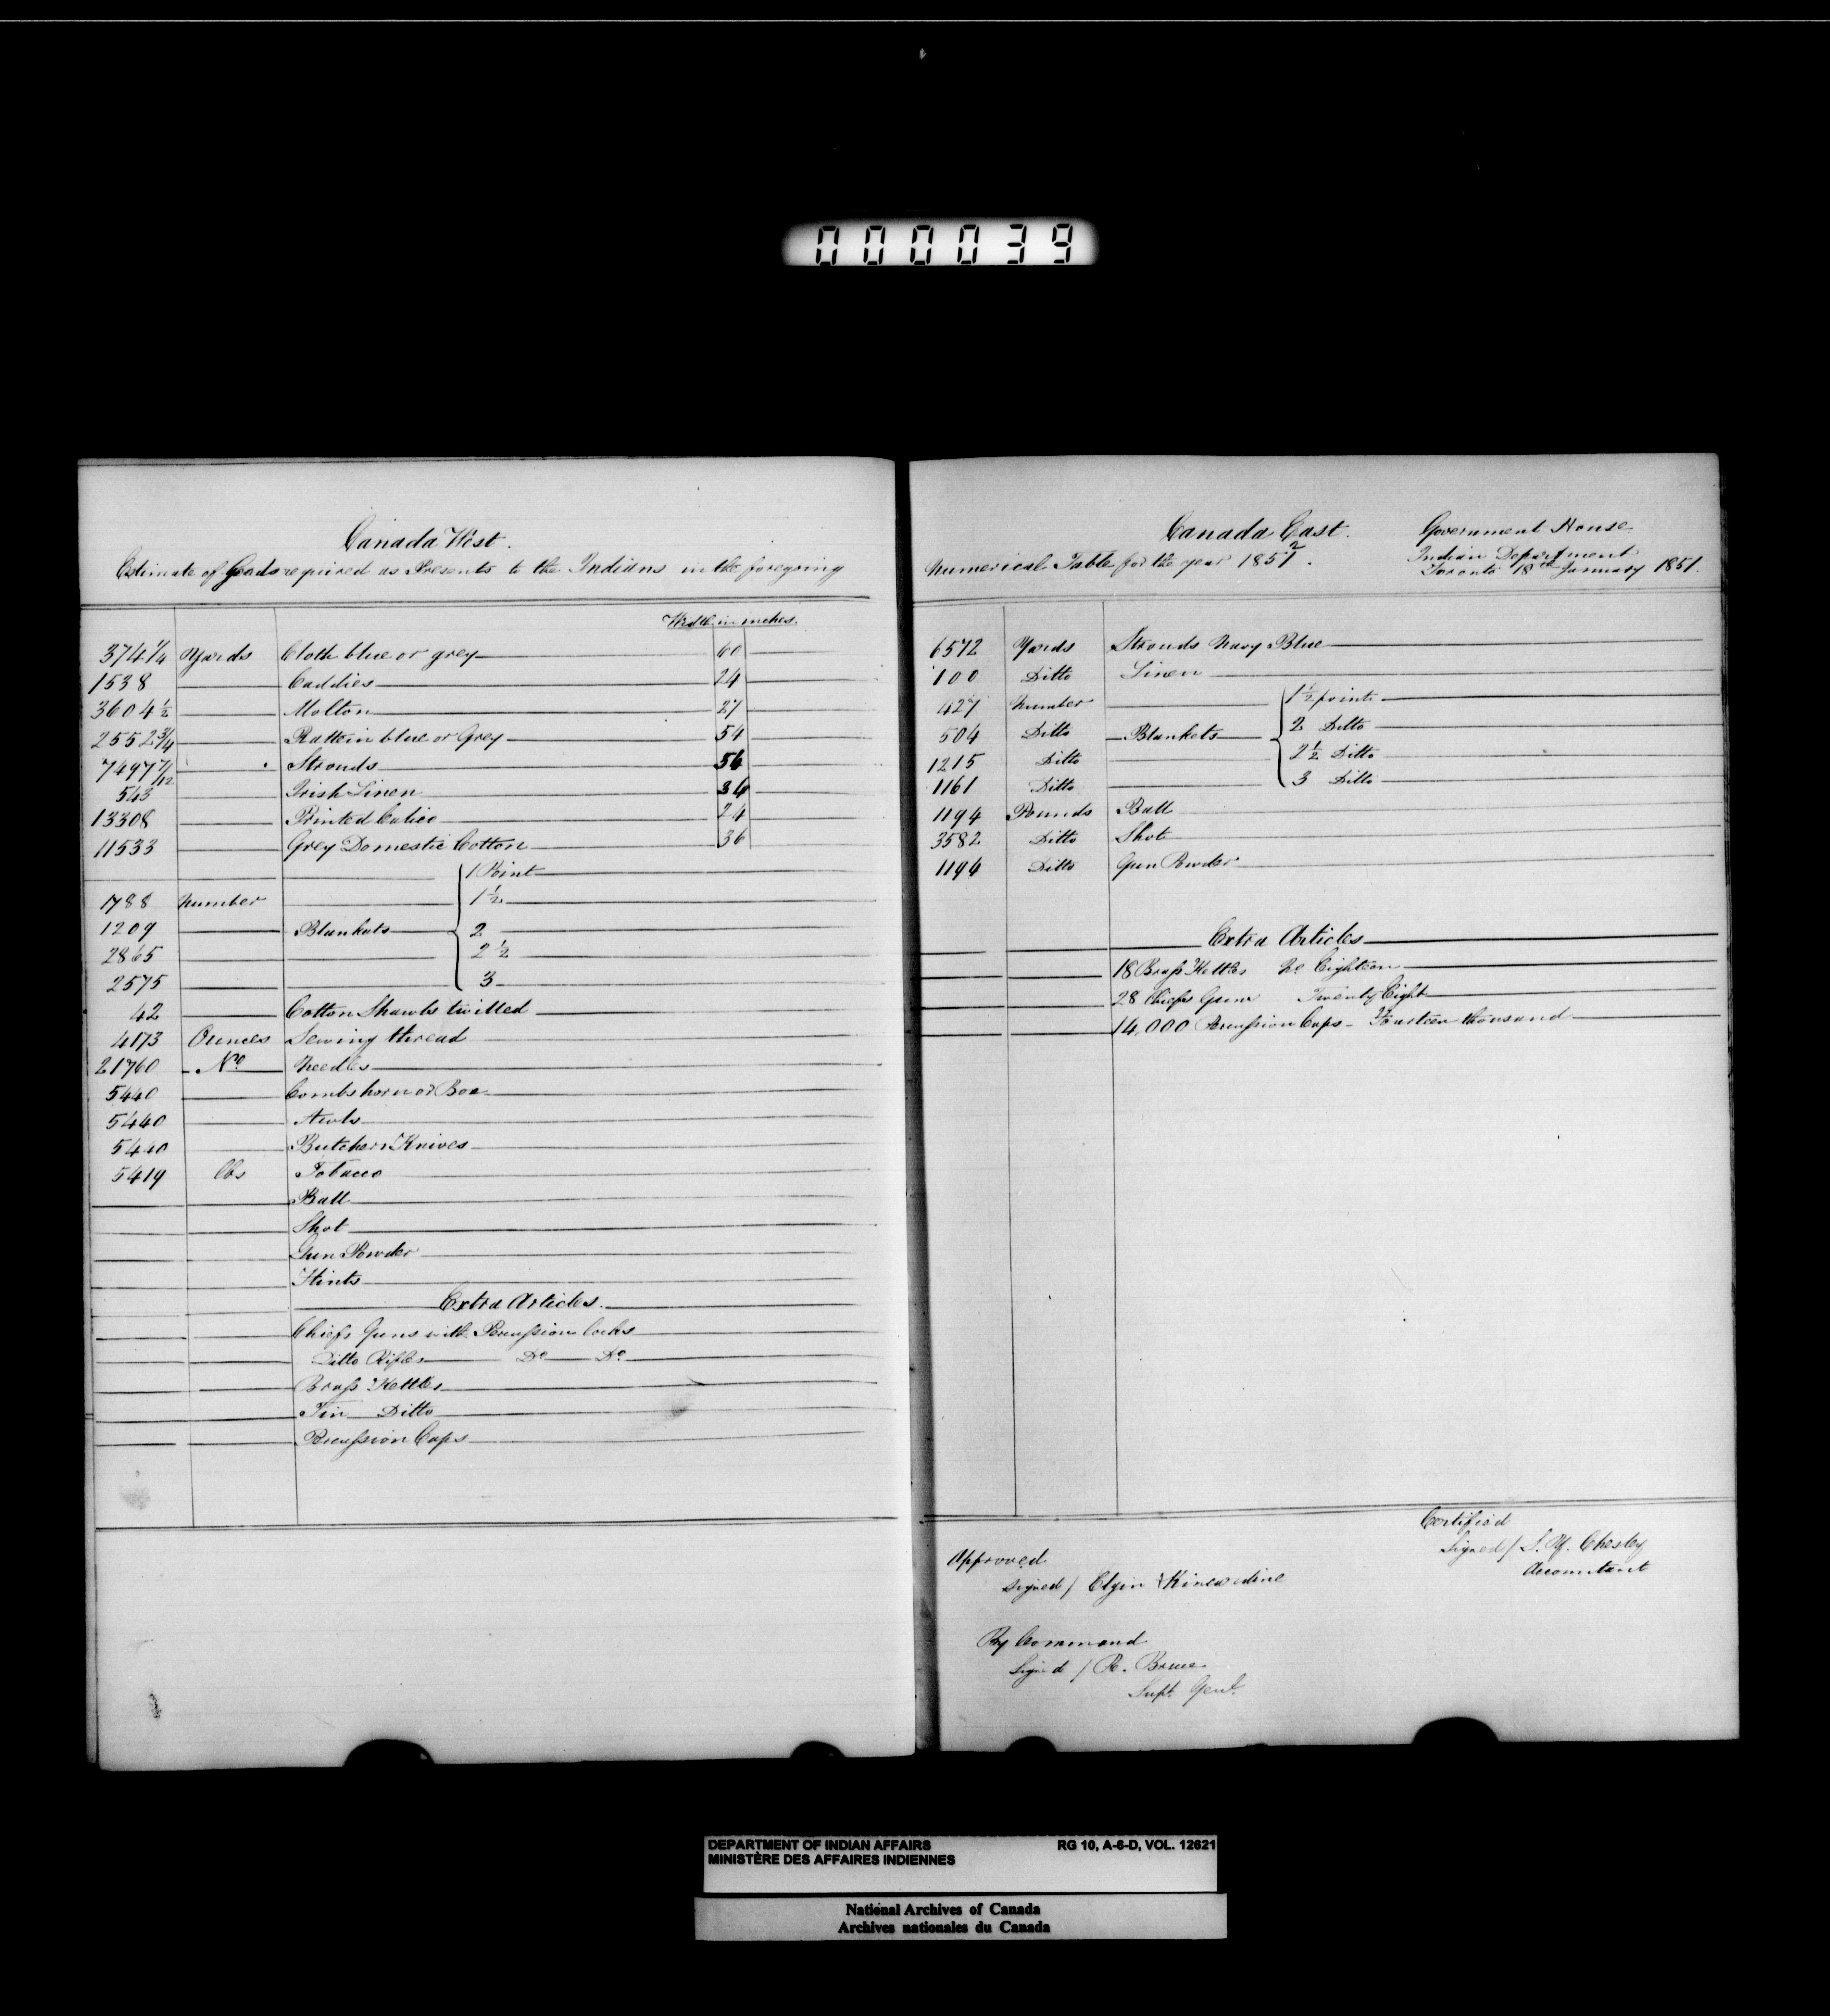 000039
Canada West.
Estimate of Goods required as Presents to the Indians in the foregoing
Width in inches.
374 1/4 Yards Cloth blue or grey 60
1538 Caddies 24
3604 1/2 Molton 27
2552 3/4 Rattein blue or Grey 54
7497 7/12 Strouds 56
543 Irish Linen 34
13308 Printed Calico 24
11533 Grey Domestic Cotton 36
1 Point
1788 Number 1 1/2
1209 Blankets 2
2865 2 1/2
2575 3
42 Cotton Shawls twilled
4173 Ounces Sewing thread
21760 No Needles
5440 Combs horn or Box
5440 Awls
5440 Butchers Knives
5419 lbs Tobacco
Ball
Shot
Gun Powder
Flints
Extra Articles.
Chiefs Guns with Percussion locks
Ditto Rifles Do Do
Brass Kettles
Tin Ditto
Percussion Caps
Canada East.
Numerical Table for the year 1851 2.
Government House
Indian Department
Toronto 18th January 1851.
6572 Yards Strouds Navy Blue
100 Ditto Linen
427 Number 1 1/2 point
504 Ditto Blankets 2 Ditto
1215 Ditto 2 1/2 Ditto
1161 Ditto 3 Ditto
1194 Pounds Ball
3582 Ditto Shot
1194 Ditto Gun Powder
Extra Articles
18 Brass Kettles No Eighteen
28 Chiefs Guns Twenty Eight
14,000 Percussion Caps - Fourteen thousand
Certified
Signed / S. Y. Chesley
Accountant
Approved
Signed / Elgin & Kincardine
By Command
Signed / R. Bruce
Supt. Genl.
DEPARTMENT OF INDIAN AFFAIRS RG 10, A-6-D, VOL. 12621
MINISTÈRE DES AFFAIRES INDIENNES
National Archives of Canada
Archives nationales du Canada